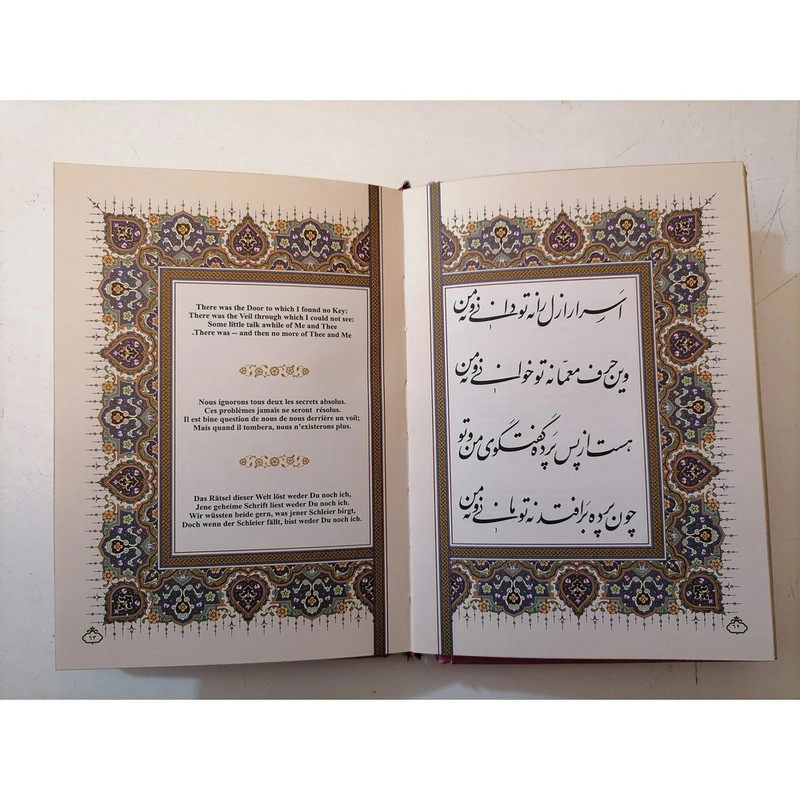 اسرار ازل را نه تو دانی و نه من
وین حرف معمّا نه تو خوانی و نه من
هست از پس پرده گفتگوی من و تو
چون پرده برافتد نه تو مانی و نه من
۱۲
There was the Door to which I found no Key:
There was the Veil through which I could not see:
Some little talk awhile of Me and Thee
.There was -- and then no more of Thee and Me
Nous ignorons tous deux les secrets absolus.
Ces problèmes jamais ne seront résolus.
Il est bine question de nous de nous derrière un voil;
Mais quand il tombera, nous n'existerons plus.
Das Rätsel dieser Welt löst weder Du noch ich,
Jene geheime Schrift liest weder Du noch ich.
Wir wüssten beide gern, was jener Schleier birgt,
Doch wenn der Schleier fällt, bist weder Du noch ich.
۱۳